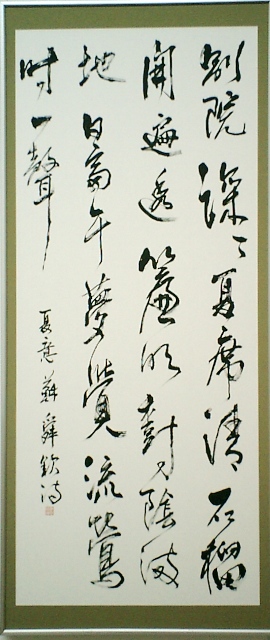 別院深々夏席清石榴
開遍透簾明樹陰満
地日当午夢覚流鶯
時一声
夏意蘇舜欽詩